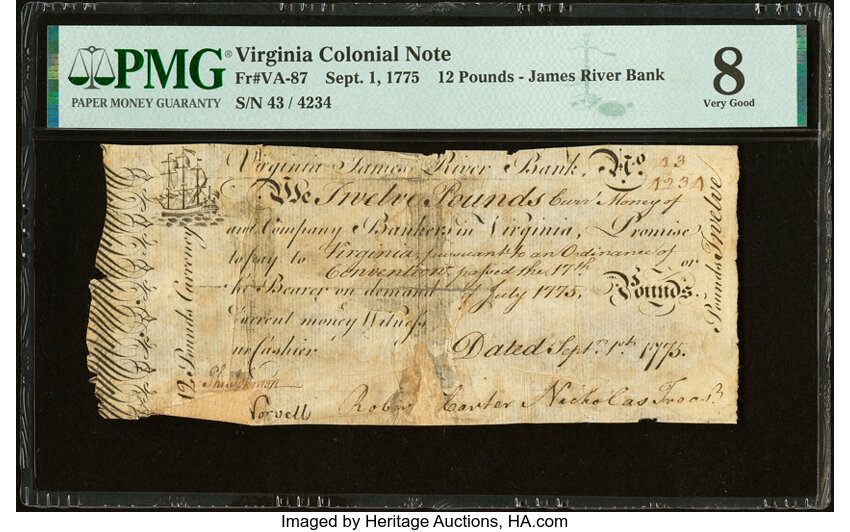 PMG®
PAPER MONEY GUARANTY
Virginia Colonial Note
Fr#VA-87 Sept. 1, 1775 12 Pounds - James River Bank
S/N 43 / 4234
8
Very Good
Virginia James River Bank, No. 43
4234
We Twelve Pounds Curr.t Money of
and Company Bankers in Virginia, Promise
to pay to Virginia, pursuant to an Ordinance of
Convention passed the 17th or
Bearer on demand of July 1775, Pounds.
Current money Witness
our Cashier. Dated Sept.r 1st 1775.
12 Pounds Currency
Pounds Twelve
Robt Carter Nicholas Treas.r
Imaged by Heritage Auctions, HA.com